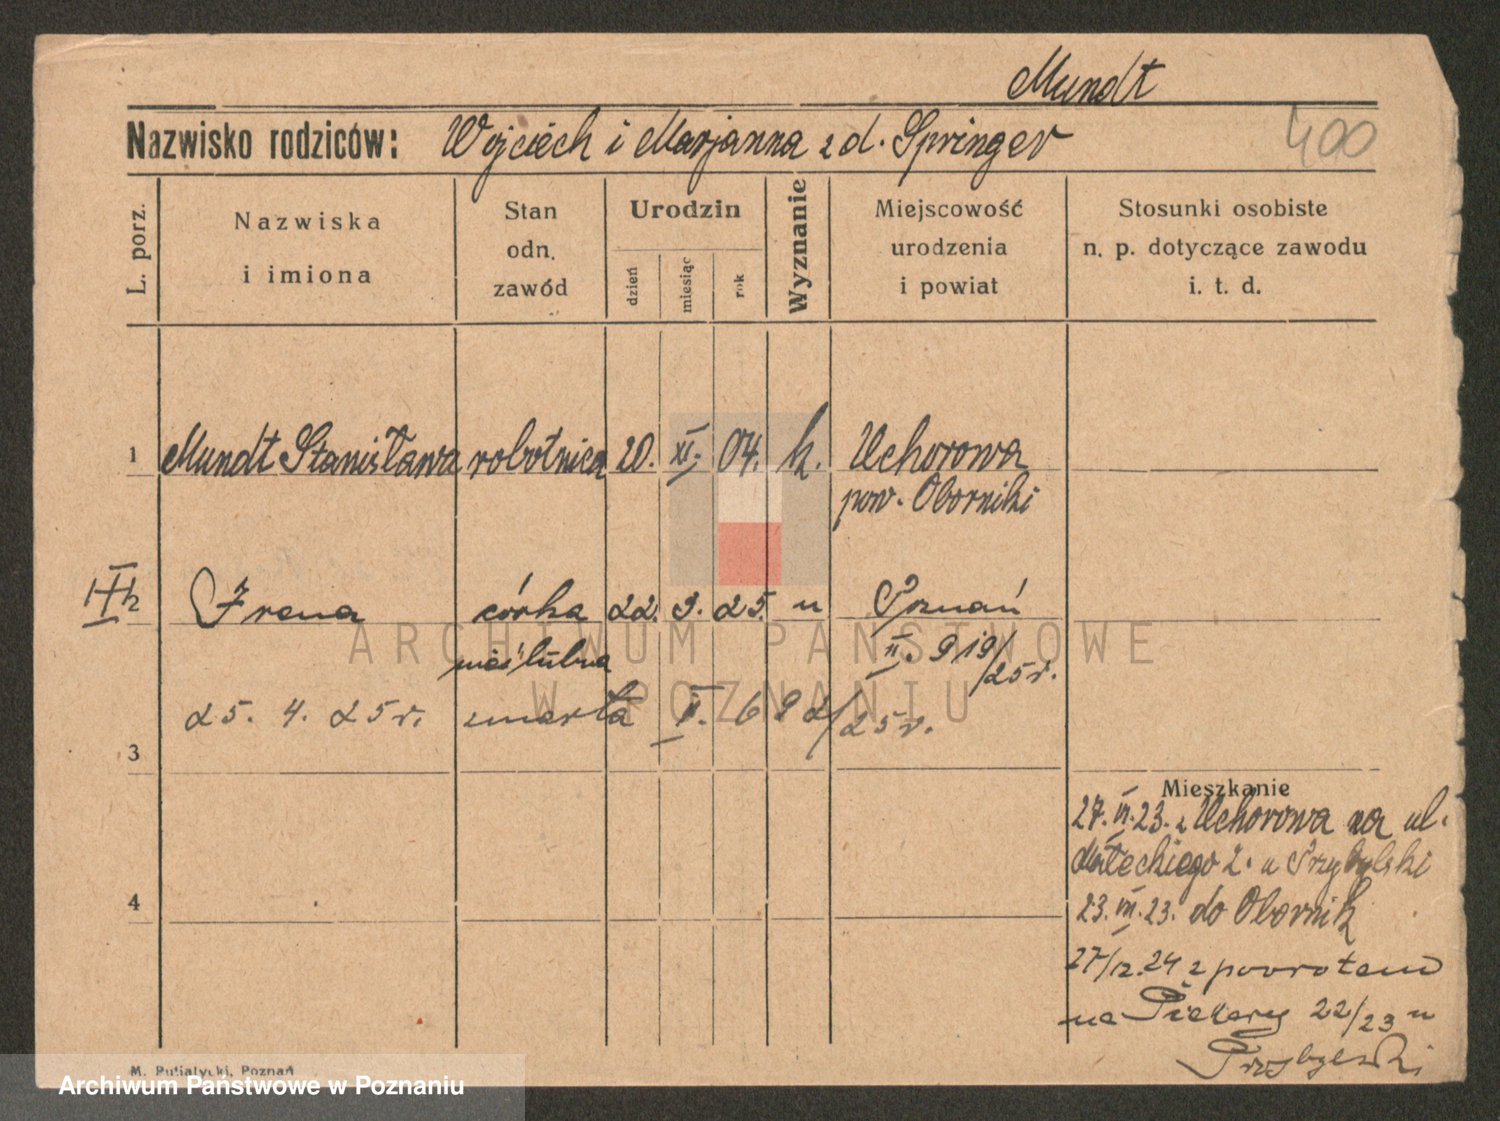 Mundt
Nazwisko rodziców: Wojciech i Marjanna z d. Springer
400
L. porz.
Nazwiska
i imiona
Stan
odn.
zawód
Urodzin
dzień
miesiąc
rok
Wyznanie
Miejscowość
urodzenia
i powiat
Stosunki osobiste
n. p. dotyczące zawodu
i. t. d.
1 Mundt Stanisława robotnica 20. XI. 04. k. Uchorowa
pow. Oborniki
2 Irena córka 22. 3. 25. u Poznań
nieślubna II. 919/25r.
25. 4. 25 r. zmarła II. 692/25 r.
3
Mieszkanie
27. VI. 23. z Uchorowa na ul.
Małeckiego 2. u Przybylski
4
23. VII. 23. do Obornik
27/12. 24 z powrotem
na Piekary 22/23 u
Przybylski
M. Putiatycki, Poznań
ARCHIWUM PAŃSTWOWE
W POZNANIU
Archiwum Państwowe w Poznaniu